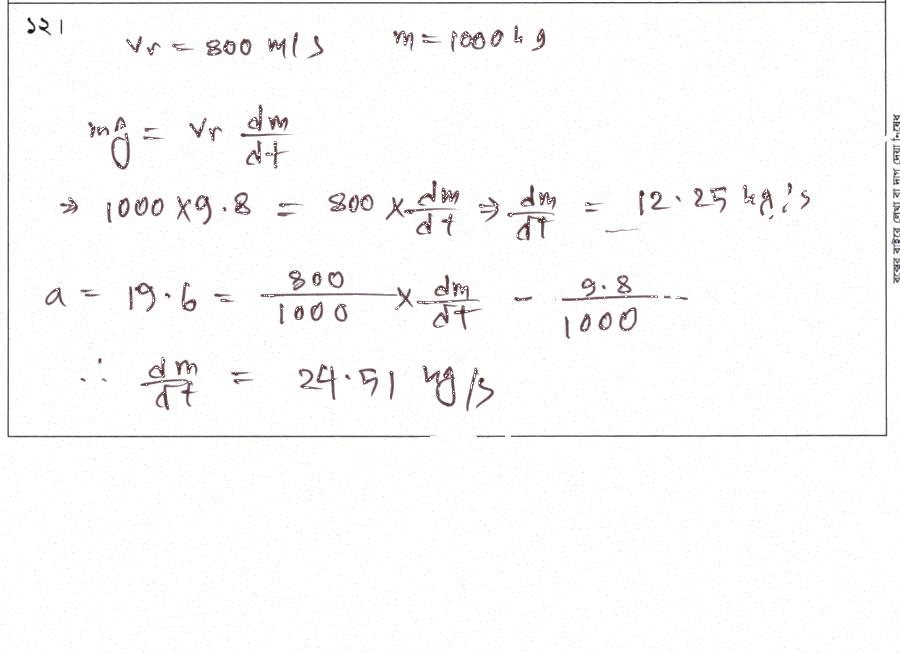 ১২।
Vr = 800 m/s m = 1000 kg
mg = Vr dm/dt
⇒ 1000 × 9.8 = 800 × dm/dt ⇒ dm/dt = 12.25 kg/s
a = 19.6 = 800/1000 × dm/dt - 9.8/1000
∴ dm/dt = 24.51 kg/s